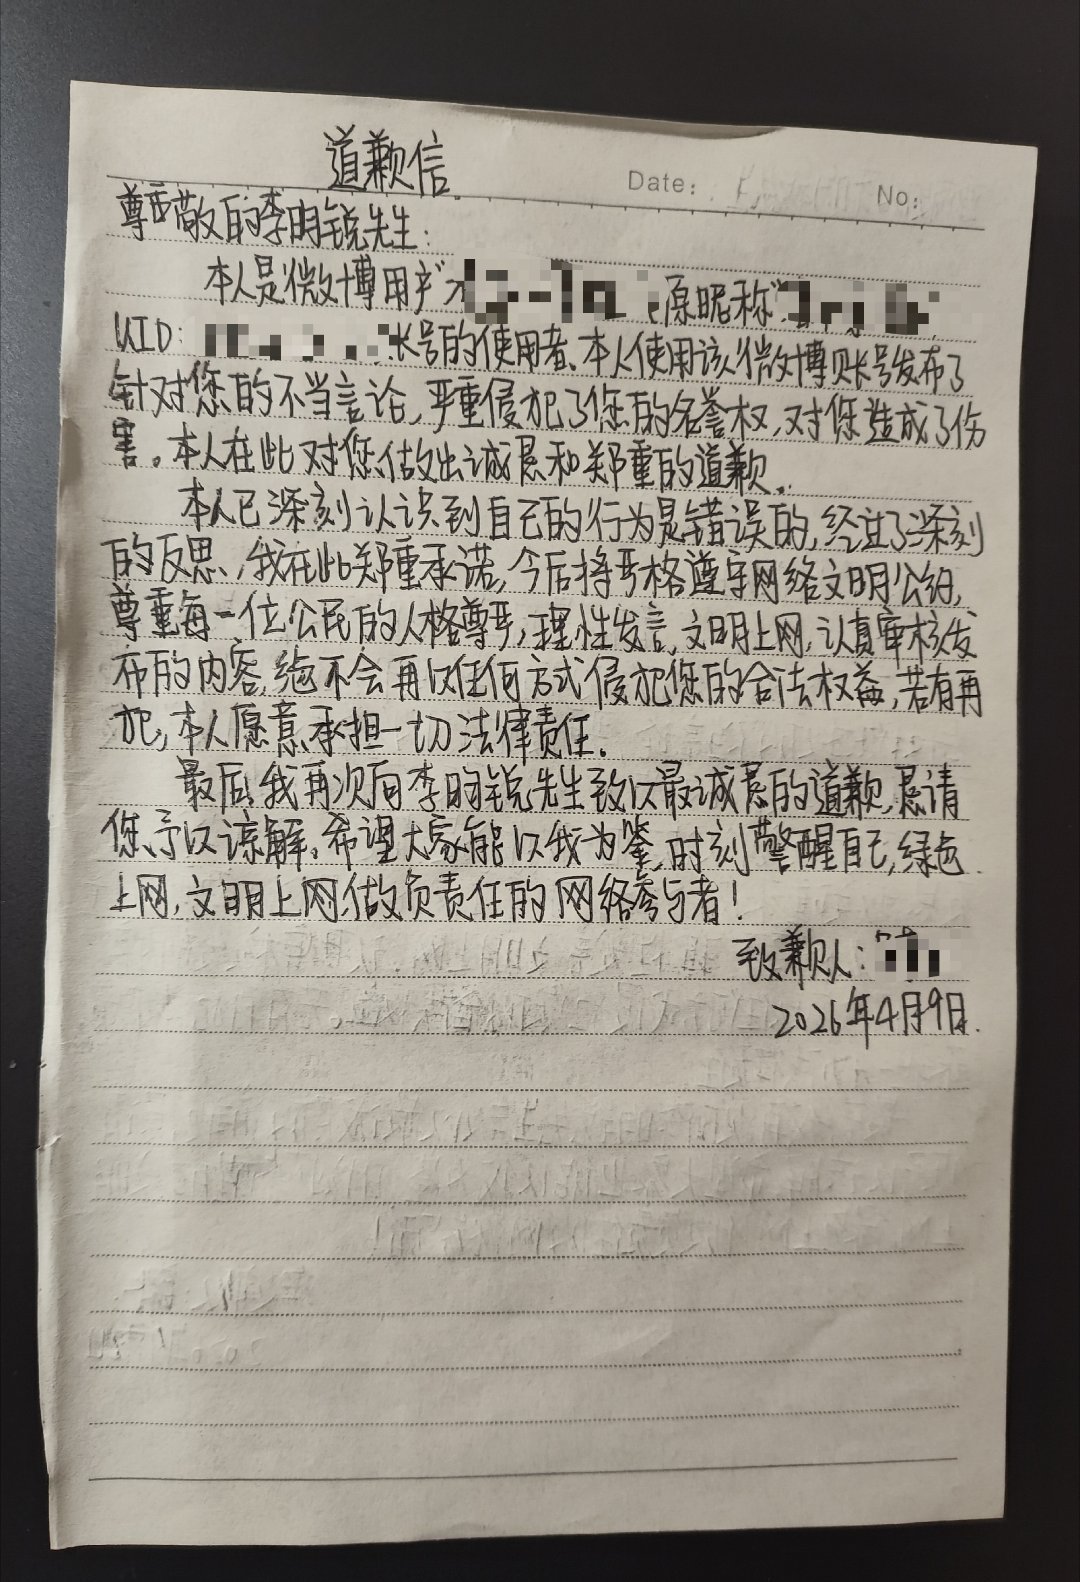 道歉信
Date: No:
尊敬的李昀锐先生:
本人是微博用户" (原昵称"
UID: 账号的使用者、本人使用该微博账号发布了
针对您的不当言论,严重侵犯了您的名誉权,对您造成了伤
害。本人在此对您做出诚恳和郑重的道歉。
本人已深刻认识到自己的行为是错误的,经过了深刻
的反思,我在此郑重承诺,今后将严格遵守网络文明公约,
尊重每一位公民的人格尊严,理性发言,文明上网,认真审核发
布的内容,绝不会再以任何方式侵犯您的合法权益,若有再
犯,本人愿意承担一切法律责任.
最后,我再次向李昀锐先生致以最诚恳的道歉,恳请
您予以谅解。希望大家能以我为鉴,时刻警醒自己,绿色
上网,文明上网,做负责任的网络参与者!
致歉人:
2026年4月9日.